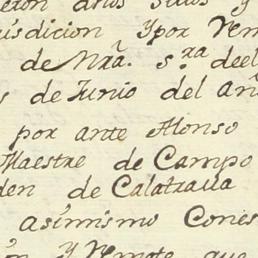 eron dhos Sitios y
urisdicion y por Rem
de Nrã. s.ra deel
s de Junio del añ
por ante Alonso
Maestre de Campo
den de Calatraua
asimismo Cones
on y Remate que